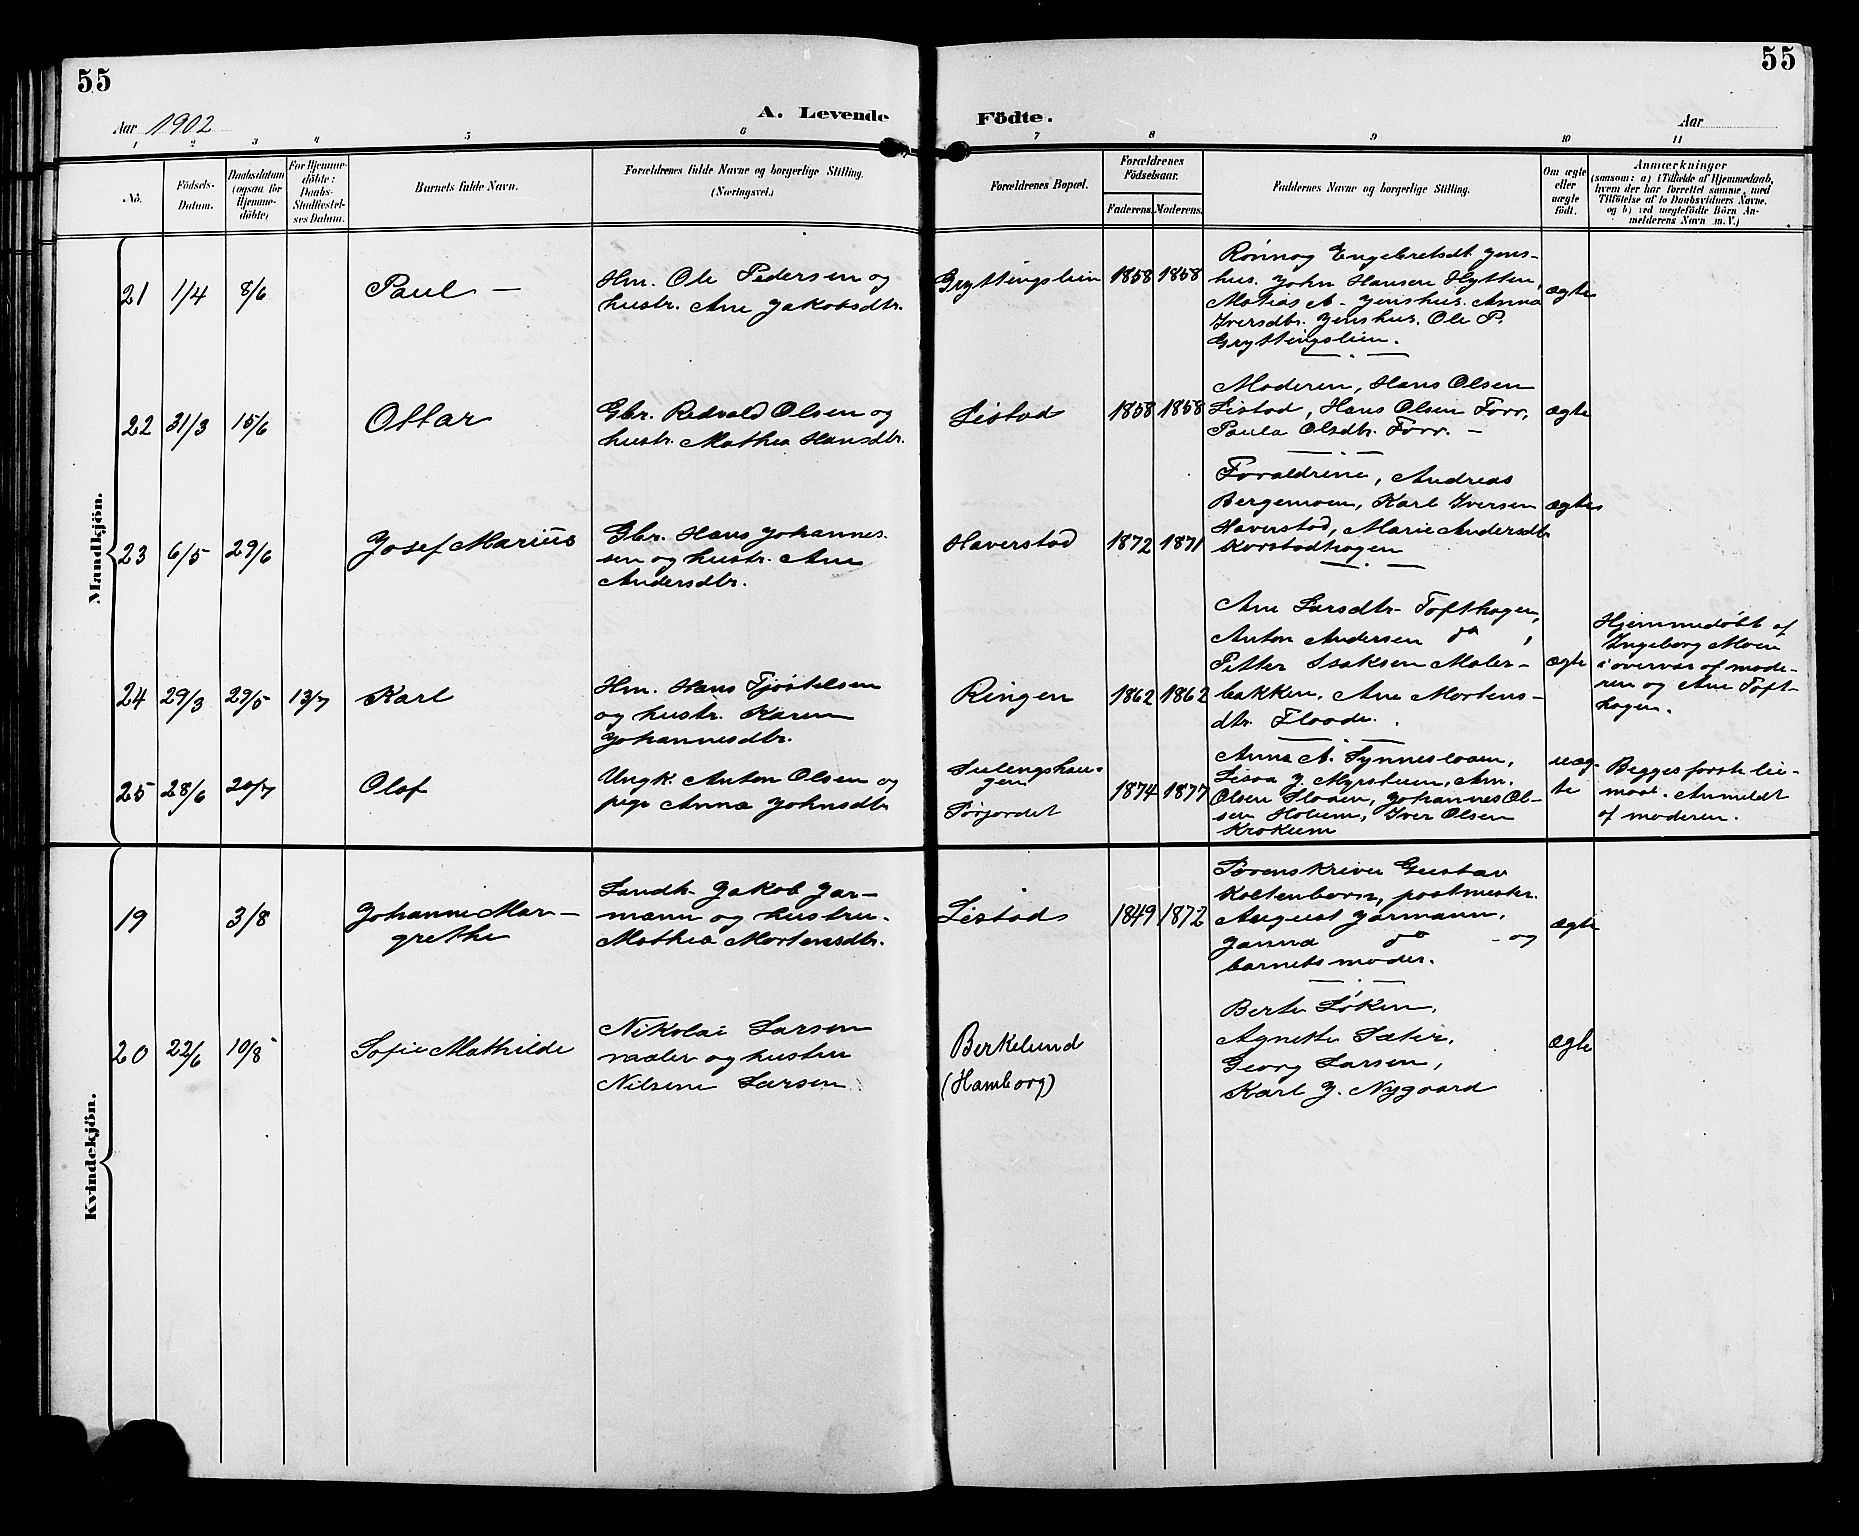 55
55
Aar 1902
A. Levende
Födte.
Aar
1 2 3 4 5 6 7 8 9 10 11
No.
Födsels-
Datum.
Daabsdatum
(ogsaa for
Hjemme-
döbte)
For Hjemme-
döbte:
Daabs-
Stadfæstel-
ses Datum.
Barnets fulde Navn.
Forældrenes fulde Navne og borgerlige Stilling.
(Næringsvei.)
Forældrenes Bopæl.
Forældrenes
Födselsaar.
Faderens. Moderens.
Faddernes Navne og borgerlige Stilling.
Om ægte
eller
uægte
födt.
Anmærkninger
(saasom: a) i Tilfælde af Hjemmedaab,
hvem der har forrettet samme, med
Tilföielse af to Daabsvidners Navne,
og b) ved uægtefödte Börn An-
melderens Navn m. V.)
Mandkjön.
21 1/4 8/6
Paul —
Hm. Ole Pedersen og
hustr. Ane Jakobsdtr.
Gryttingslien
1858 1858
Rønnog Engebretsdt Jens-
hus. John Hansen Hytten,
Matias A. Jenshus. Anna
Iversdtr. Jenshus. Ole P.
Gryttingslien.
ægte
22 31/3 15/6
Ottar
Gbr. Redvald Olsen og
hustr. Mathea Hansdtr.
Listad
1858 1858
Moderen, Hans Olsen
Listad, Hans Olsen Forr,
Paula Olsdtr. Forr. —
ægte
23 6/5 29/6
Josef Marius
Gbr. Hans Johannes-
sen og hustr. Ane
Andersdtr.
Haverstad
1872 1871
Forældrene, Andreas
Bergemoen, Karl Iversen
Haverstad, Marie Andersdtr
Korstadhagen
ægte
24 29/3 29/5 13/7
Karl
Hm. Hans Fjøstelsen
og hustr. Karen
Johannesdtr.
Ringen
1862 1862
Ane Larsdtr. Tofthagen,
Anton Andersen do,
Petter Isaksen Maler-
bakken, Ane Mortens-
dtr. Flaade.
ægte
Hjemmedøbt af
Ingeborg Moen
i overvær af mode-
ren og Ane Toft-
hagen.
25 28/6 20/7
Olaf
Ungk. Anton Olsen og
pige Anna Johnsdtr
Sulengshau-
gen
Sørjordet
1874 1877
Anna A. Synneslaaen,
Lisva J Myrstuen, Am.
Olsen Slaaen, Johannes Ol-
sen Holeem, Iver Olsen
Krokum
uæg-
te
Begges første lei-
maal. Anmeldt
af moderen.
Kvindekjön.
19 3/8
Johanne Mar-
grethe
Landh. Jakob Jar-
mann og hustru.
Mathea Mortensdtr.
Listad
1849 1872
Sorenskriver Gustav
Koltenborn, postmester
August Jarmann,
Janna do - og
barnets moder.
ægte
20 22/6 10/8
Sofie Mathilde
Nikolai Larsen
maler og hustru
Nilsine Larsen
Berkelund
(Hamborg)
Berte Løken,
Agnette Sæter,
Georg Larsen,
Karl J. Nygaard
ægte